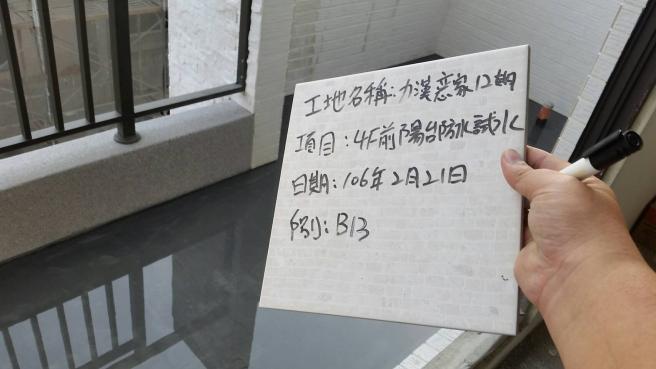 工地名稱:力漢恋家12期
項目:4F前陽台防水試水
日期:106年2月21日
戶別:B13